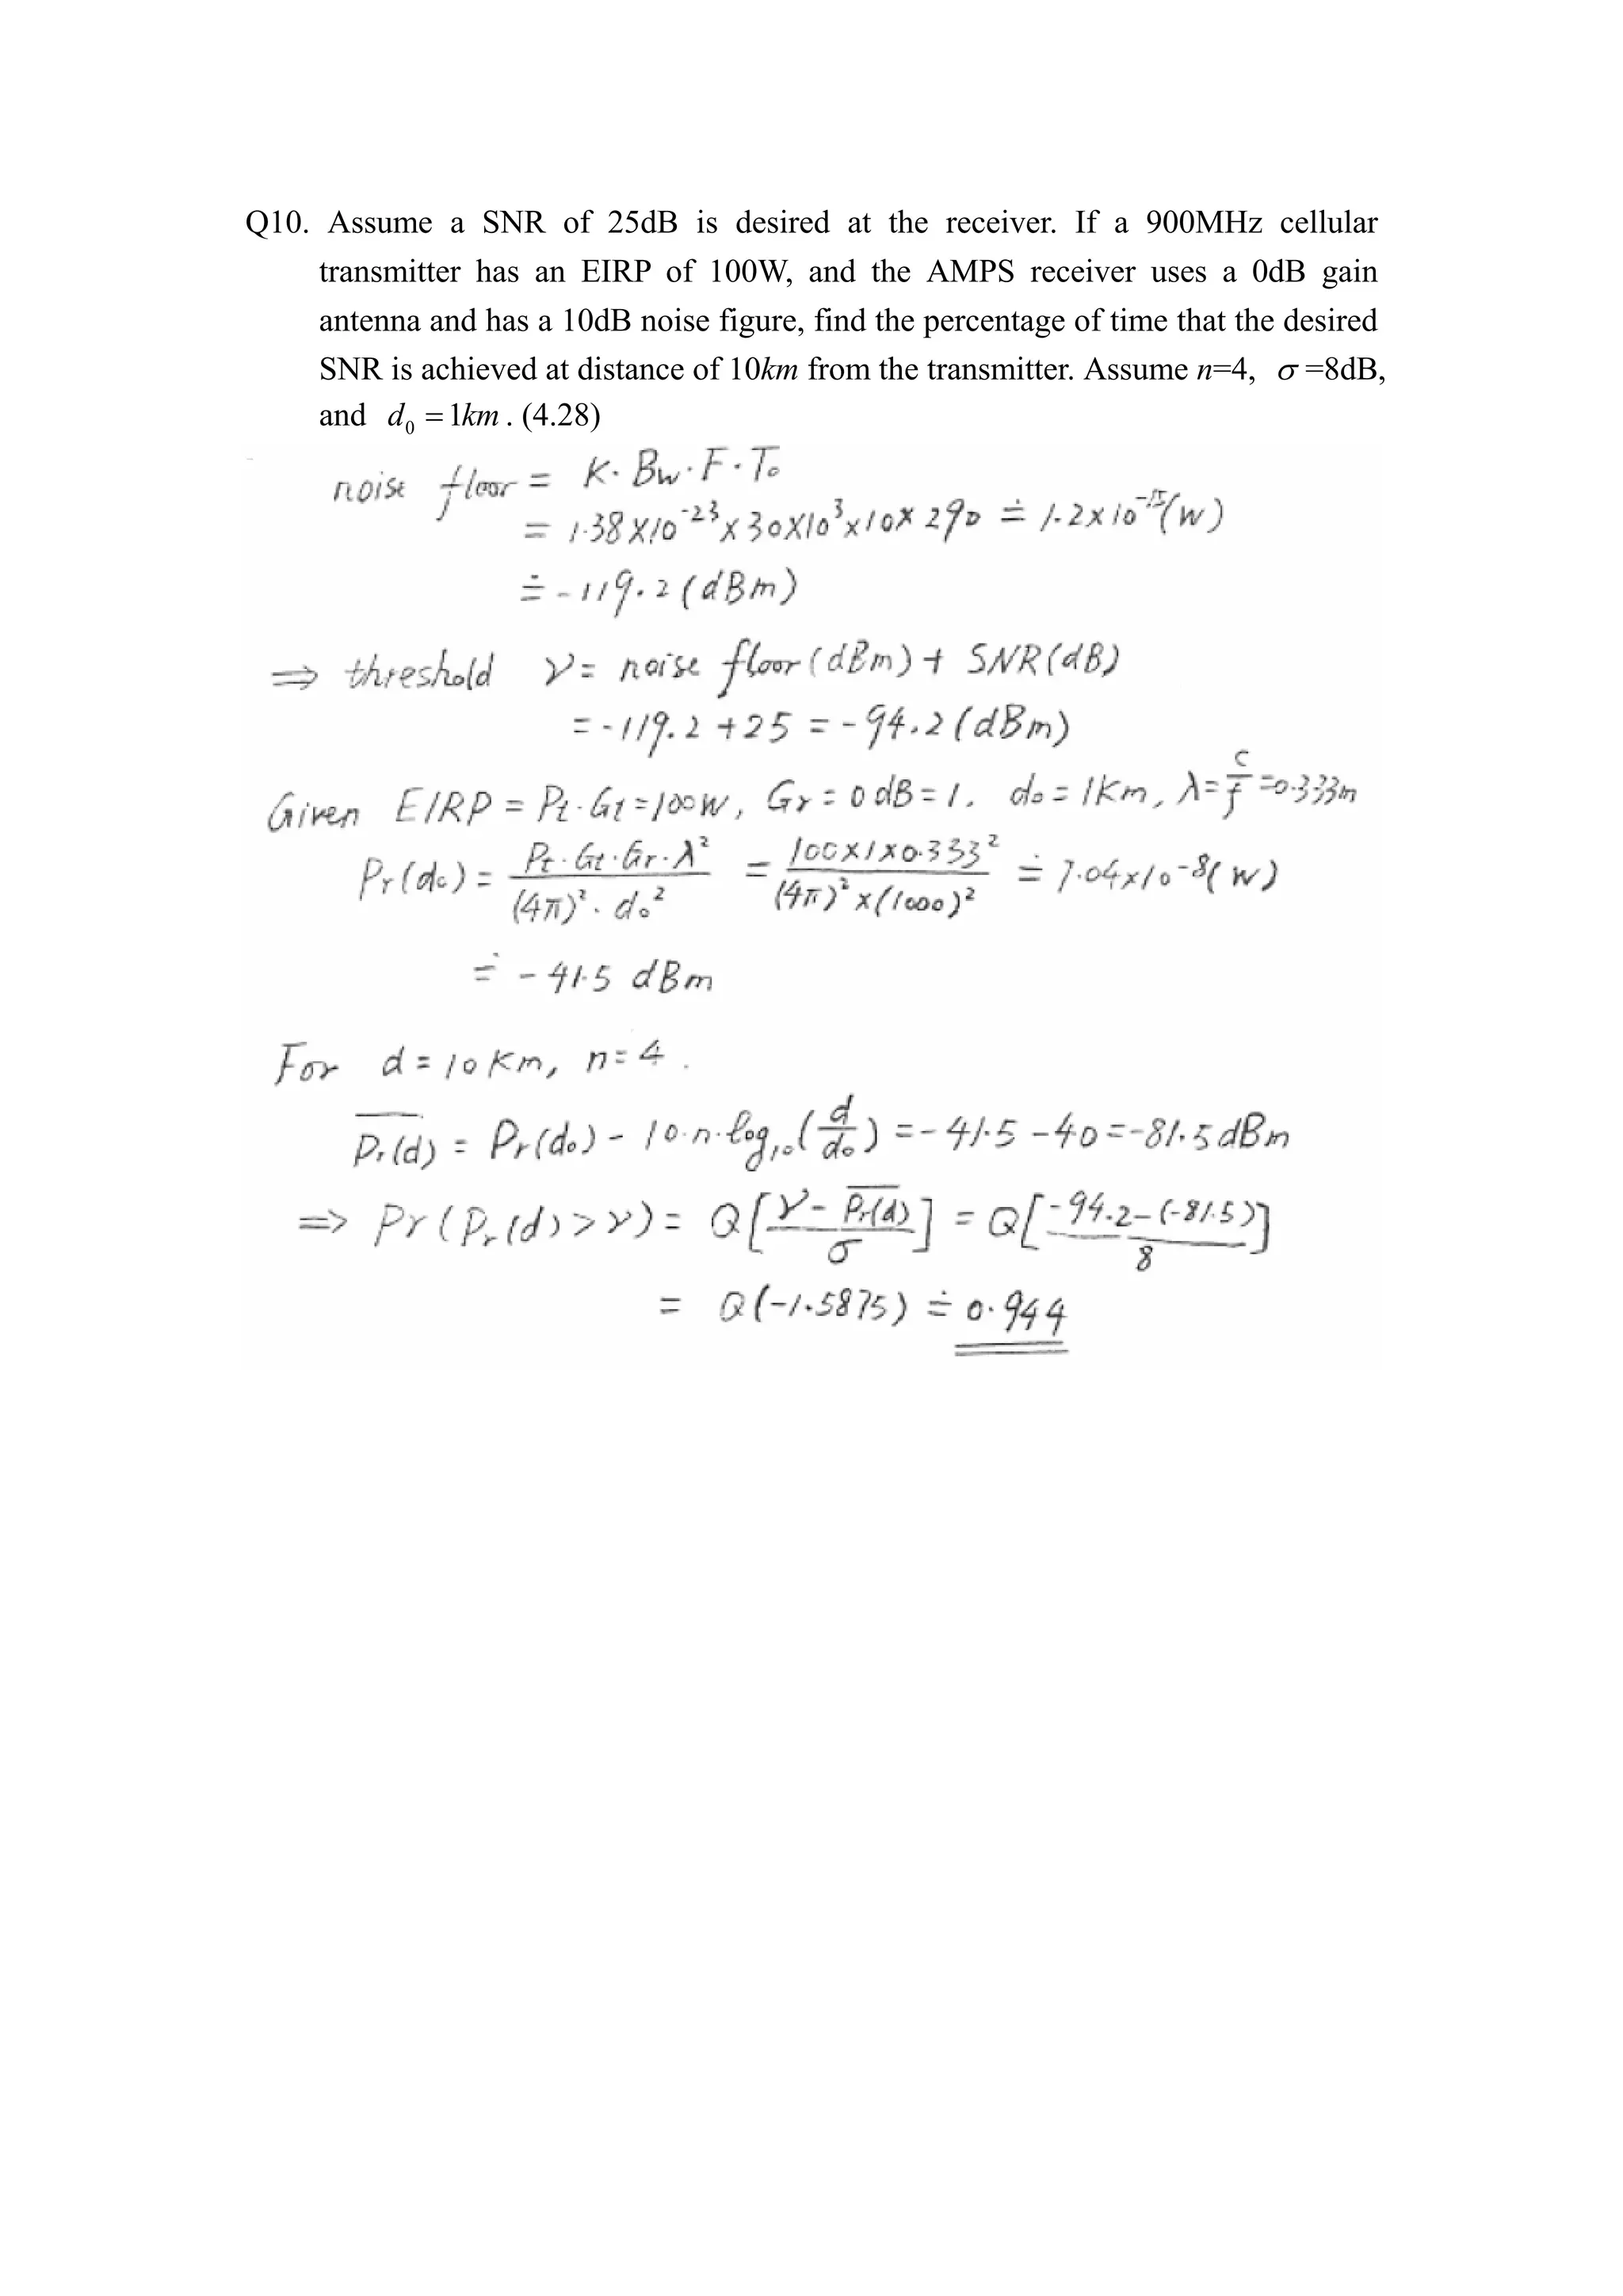 Q10. Assume a SNR of 25dB is desired at the receiver. If a 900MHz cellular
transmitter has an EIRP of 100W, and the AMPS receiver uses a 0dB gain
antenna and has a 10dB noise figure, find the percentage of time that the desired
SNR is achieved at distance of 10km from the transmitter. Assume n=4, σ=8dB,
and d₀ = 1km. (4.28)
noise floor = K · Bw · F · T₀
= 1.38×10⁻²³ × 30×10³ × 10 × 290 ≐ 1.2×10⁻¹⁵ (W)
≐ -119.2 (dBm)
⇒ threshold γ = noise floor (dBm) + SNR (dB)
= -119.2 + 25 = -94.2 (dBm)
Given EIRP = Pt · Gt = 100W, Gr = 0 dB = 1, d₀ = 1km, λ = c/f = 0.333m
Pr(d₀) = Pt · Gt · Gr · λ² / (4π)² · d₀² = 100×1×0.333² / (4π)² × (1000)² ≐ 7.04×10⁻⁸ (W)
≐ -41.5 dBm
For d = 10 km, n = 4.
P̅r̅(̅d̅)̅ = Pr(d₀) - 10 · n · log₁₀ (d/d₀) = -41.5 - 40 = -81.5 dBm
⇒ Pr (Pr(d) > γ) = Q[(γ - P̅r̅(̅d̅)̅)/σ] = Q[(-94.2 - (-81.5))/8]
= Q(-1.5875) ≐ 0.944